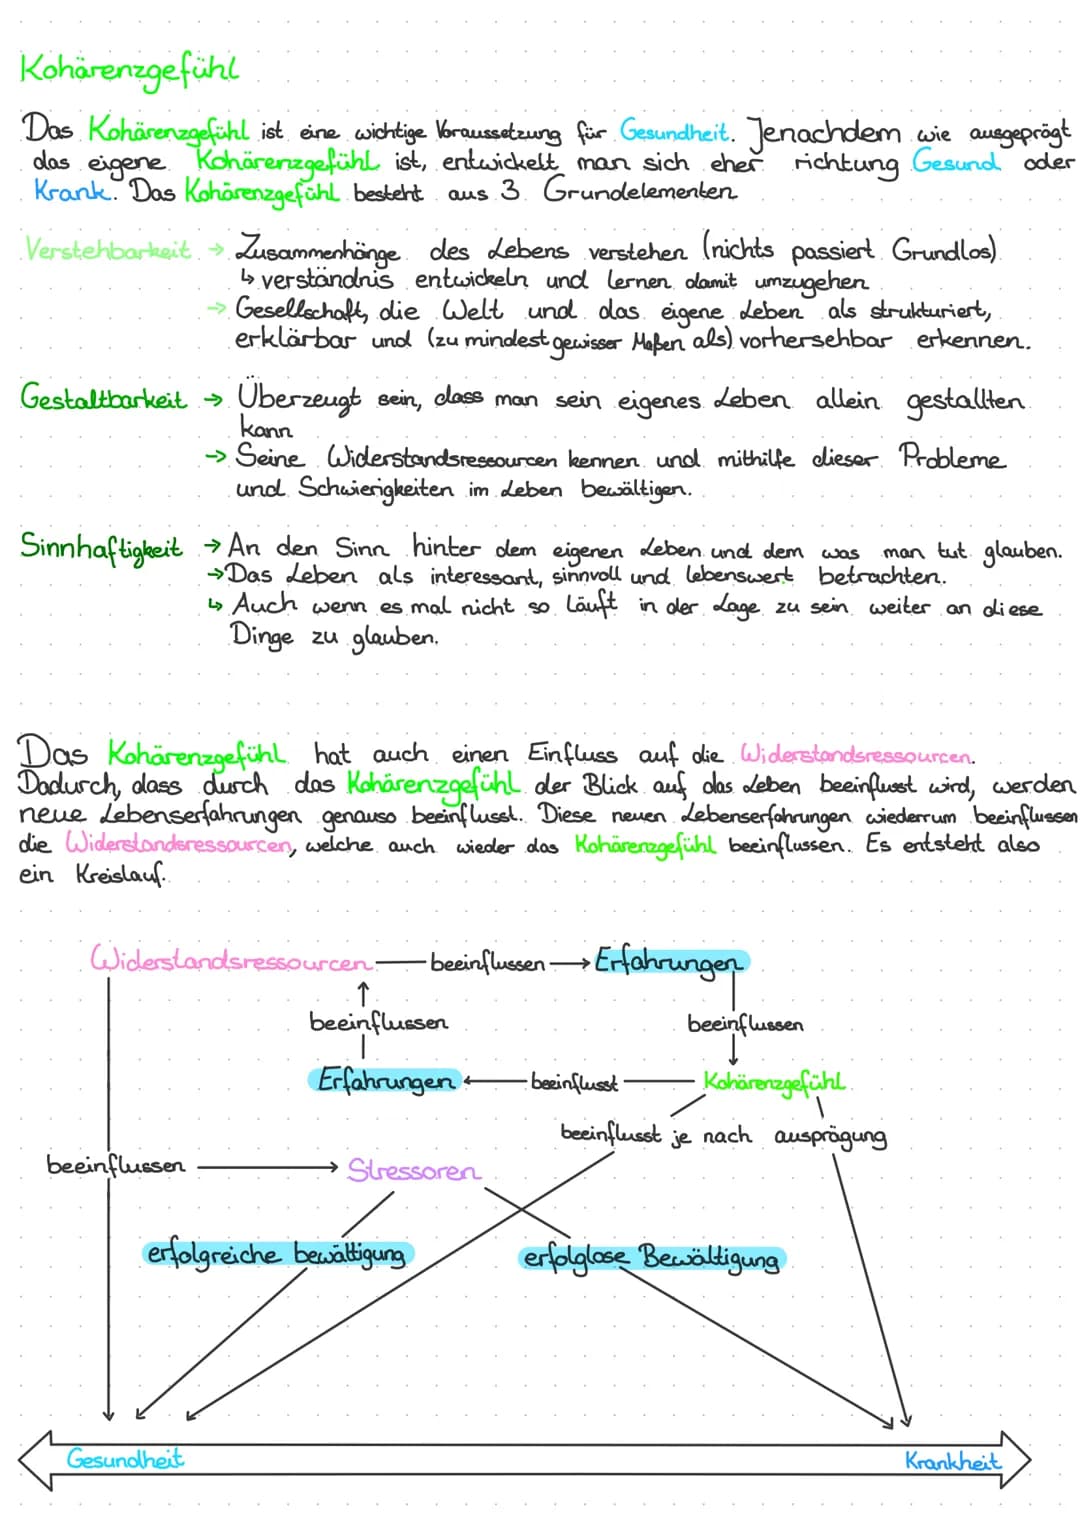 Kohärenzgefühl
Das Kohärenzgefühl ist eine wichtige Voraussetzung für Gesundheit. Jenachdem wie ausgeprägt
das eigene Kohärenzgefühl ist, entwickelt man sich eher richtung Gesund oder
Krank. Das Kohärenzgefühl besteht aus 3 Grundelementen
Verstehbarkeit → Zusammenhänge des Lebens verstehen (nichts passiert Grundlos)
↳ verständnis entwickeln und lernen damit umzugehen
→ Gesellschaft, die Welt und das eigene Leben als strukturiert,
erklärbar und (zu mindest gewisser Maßen als) vorhersehbar erkennen.
Gestaltbarkeit → Überzeugt sein, dass man sein eigenes Leben allein gestallten
kann
→ Seine Widerstandsressourcen kennen und mithilfe dieser Probleme
und Schwierigkeiten im Leben bewältigen.
Sinnhaftigkeit → An den Sinn hinter dem eigenen Leben und dem was man tut glauben.
→ Das Leben als interessant, sinnvoll und lebenswert betrachten.
↳ Auch wenn es mal nicht so läuft in der Lage zu sein weiter an diese
Dinge zu glauben.
Das Kohärenzgefühl hat auch einen Einfluss auf die Widerstandsressourcen.
Dadurch, dass durch das Kohärenzgefühl der Blick auf das Leben beeinflusst wird, werden
neue Lebenserfahrungen genauso beeinflusst. Diese neuen Lebenserfahrungen wiederrum beeinflussen
die Widerstandsressourcen, welche auch wieder das Kohärenzgefühl beeinflussen. Es entsteht also
ein Kreislauf.
Widerstandsressourcen — beeinflussen → Erfahrungen
beeinflussen beeinflussen
Erfahrungen ← beeinflusst — Kohärenzgefühl
beeinflusst je nach ausprägung
beeinflussen → Stressoren
erfolgreiche bewältigung erfolglose Bewältigung
Gesundheit Krankheit